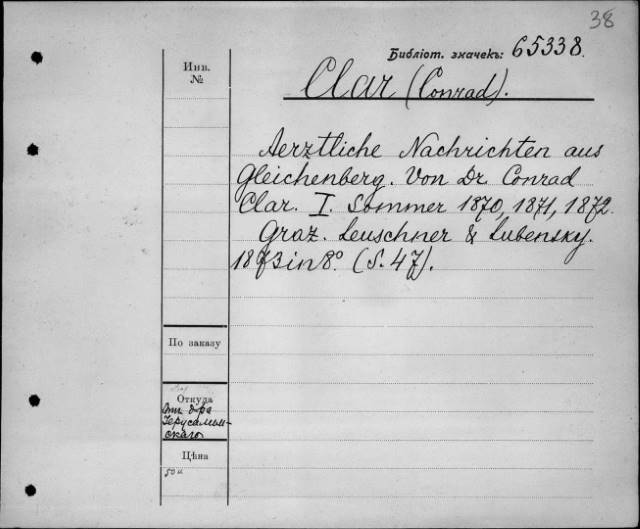 38
Библіот. значекъ: 65338.
Инв.
№
Clar (Conrad).
Aerztliche Nachrichten aus
Gleichenberg. Von Dr. Conrad
Clar. I. Sommer 1870, 1871, 1872.
Graz. Leuschner & Lubensky.
1873 in 8º. (S. 47).
По заказу
Откуда
Отъ д-ра
Іерусалим-
скаго
Цѣна
50 к